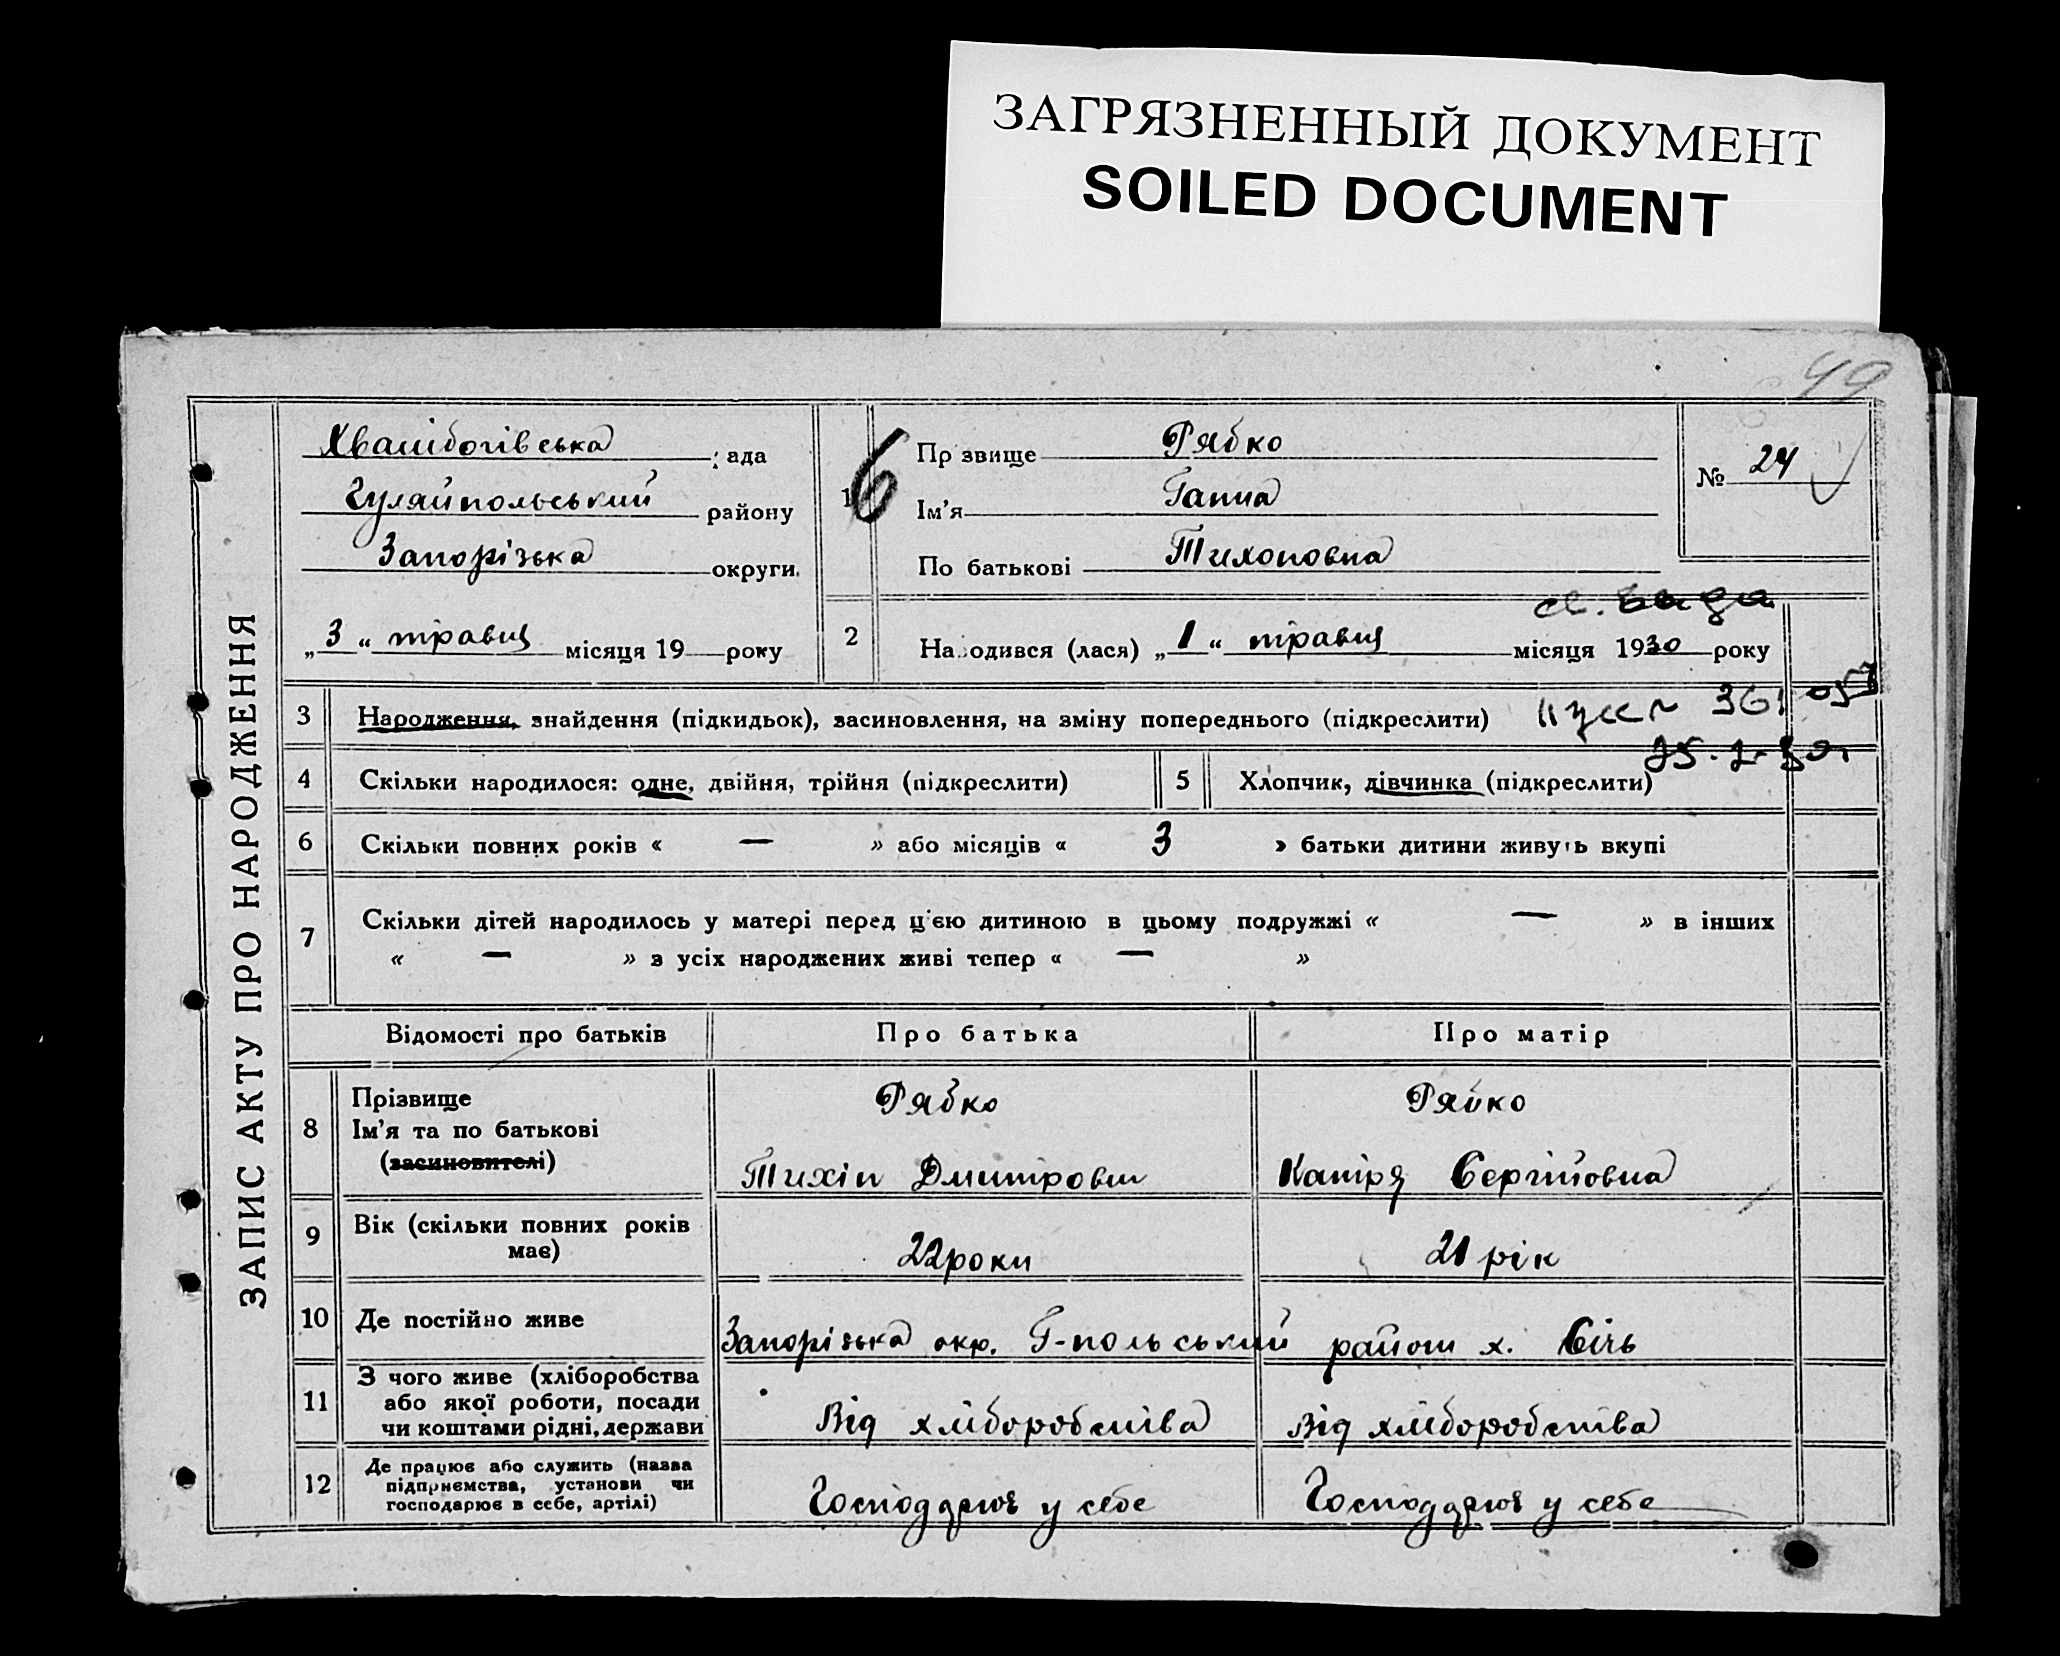 ЗАГРЯЗНЕННЫЙ ДОКУМЕНТ
SOILED DOCUMENT
49
ЗАПИС АКТУ ПРО НАРОДЖЕННЯ
Хвалібогівська рада
Гуляйпольський району
Запорізька округи.
„3“ травня місяця 19 року
6
1 Прізвище Рябко
Ім'я Ганна
По батькові Тихоновна
№ 24
2 Народився (лася) „1“ травня місяця 1930 року
3 Народження, знайдення (підкидьок), засиновлення, на зміну попереднього (підкреслити)
4 Скільки народилося: одне, двійня, трійня (підкреслити) 5 Хлопчик, дівчинка (підкреслити)
6 Скільки повних років « — » або місяців « 3 » батьки дитини живуть вкупі
7 Скільки дітей народилось у матері перед цією дитиною в цьому подружжі « — » в інших
« — » з усіх народжених живі тепер « — »
Відомості про батьків Про батька Про матір
8 Прізвище Рябко Рябко
Ім'я та по батькові
(засиновителі) Тихін Дмитрович Катря Сергійовна
9 Вік (скільки повних років має) 22 роки 21 рік
10 Де постійно живе Запорізька окр. Г-польський район х. Січь
11 З чого живе (хліборобства
або якої роботи, посади
чи коштами рідні, держави Від хліборобства Від хліборобства
12 Де працює або служить (назва
підприємства, установи чи
господарює в себе, артілі) Господарює у себе Господарює у себе